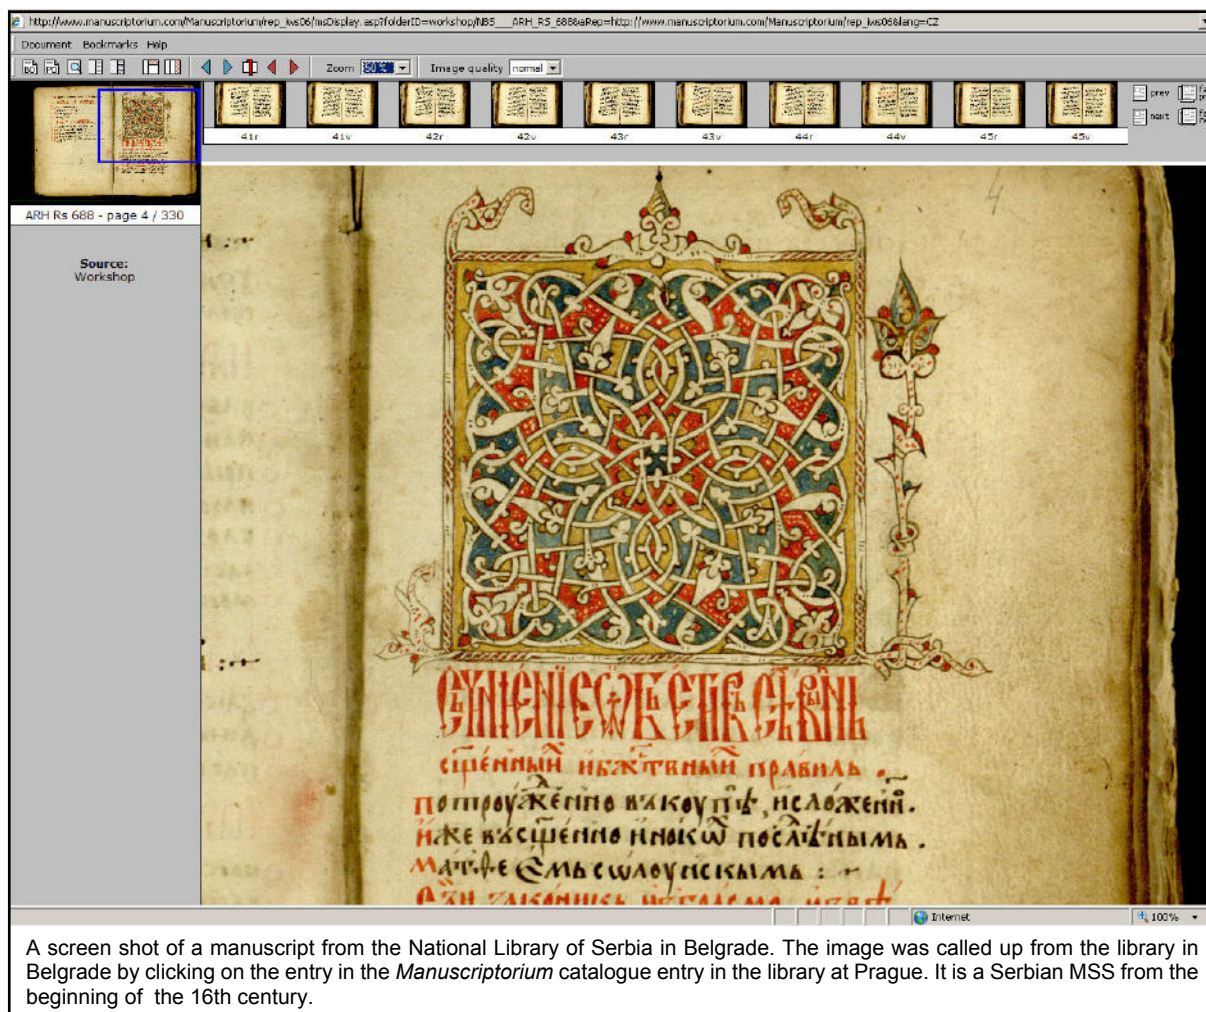 http://www.manuscriptorium.com/Manuscriptorium/rep_iws06/msDisplay.asp?folderID=workshop/NBS___ARH_RS_688&aRep=http://www.manuscriptorium.com/Manuscriptorium/rep_iws06&lang=CZ
Document Bookmarks Help
Zoom 50% Image quality normal
41r 41v 42r 42v 43r 43v 44r 44v 45r 45v
prev
next
ARH Rs 688 - page 4 / 330
Source:
Workshop
4
сщ҃е́нныи
потроуже́нно въкоупѣ, исложенн.
и́же въсщ҃е́нно инокѡ послѣ́нымь.
Internet 100%
A screen shot of a manuscript from the National Library of Serbia in Belgrade. The image was called up from the library in
Belgrade by clicking on the entry in the Manuscriptorium catalogue entry in the library at Prague. It is a Serbian MSS from the
beginning of the 16th century.